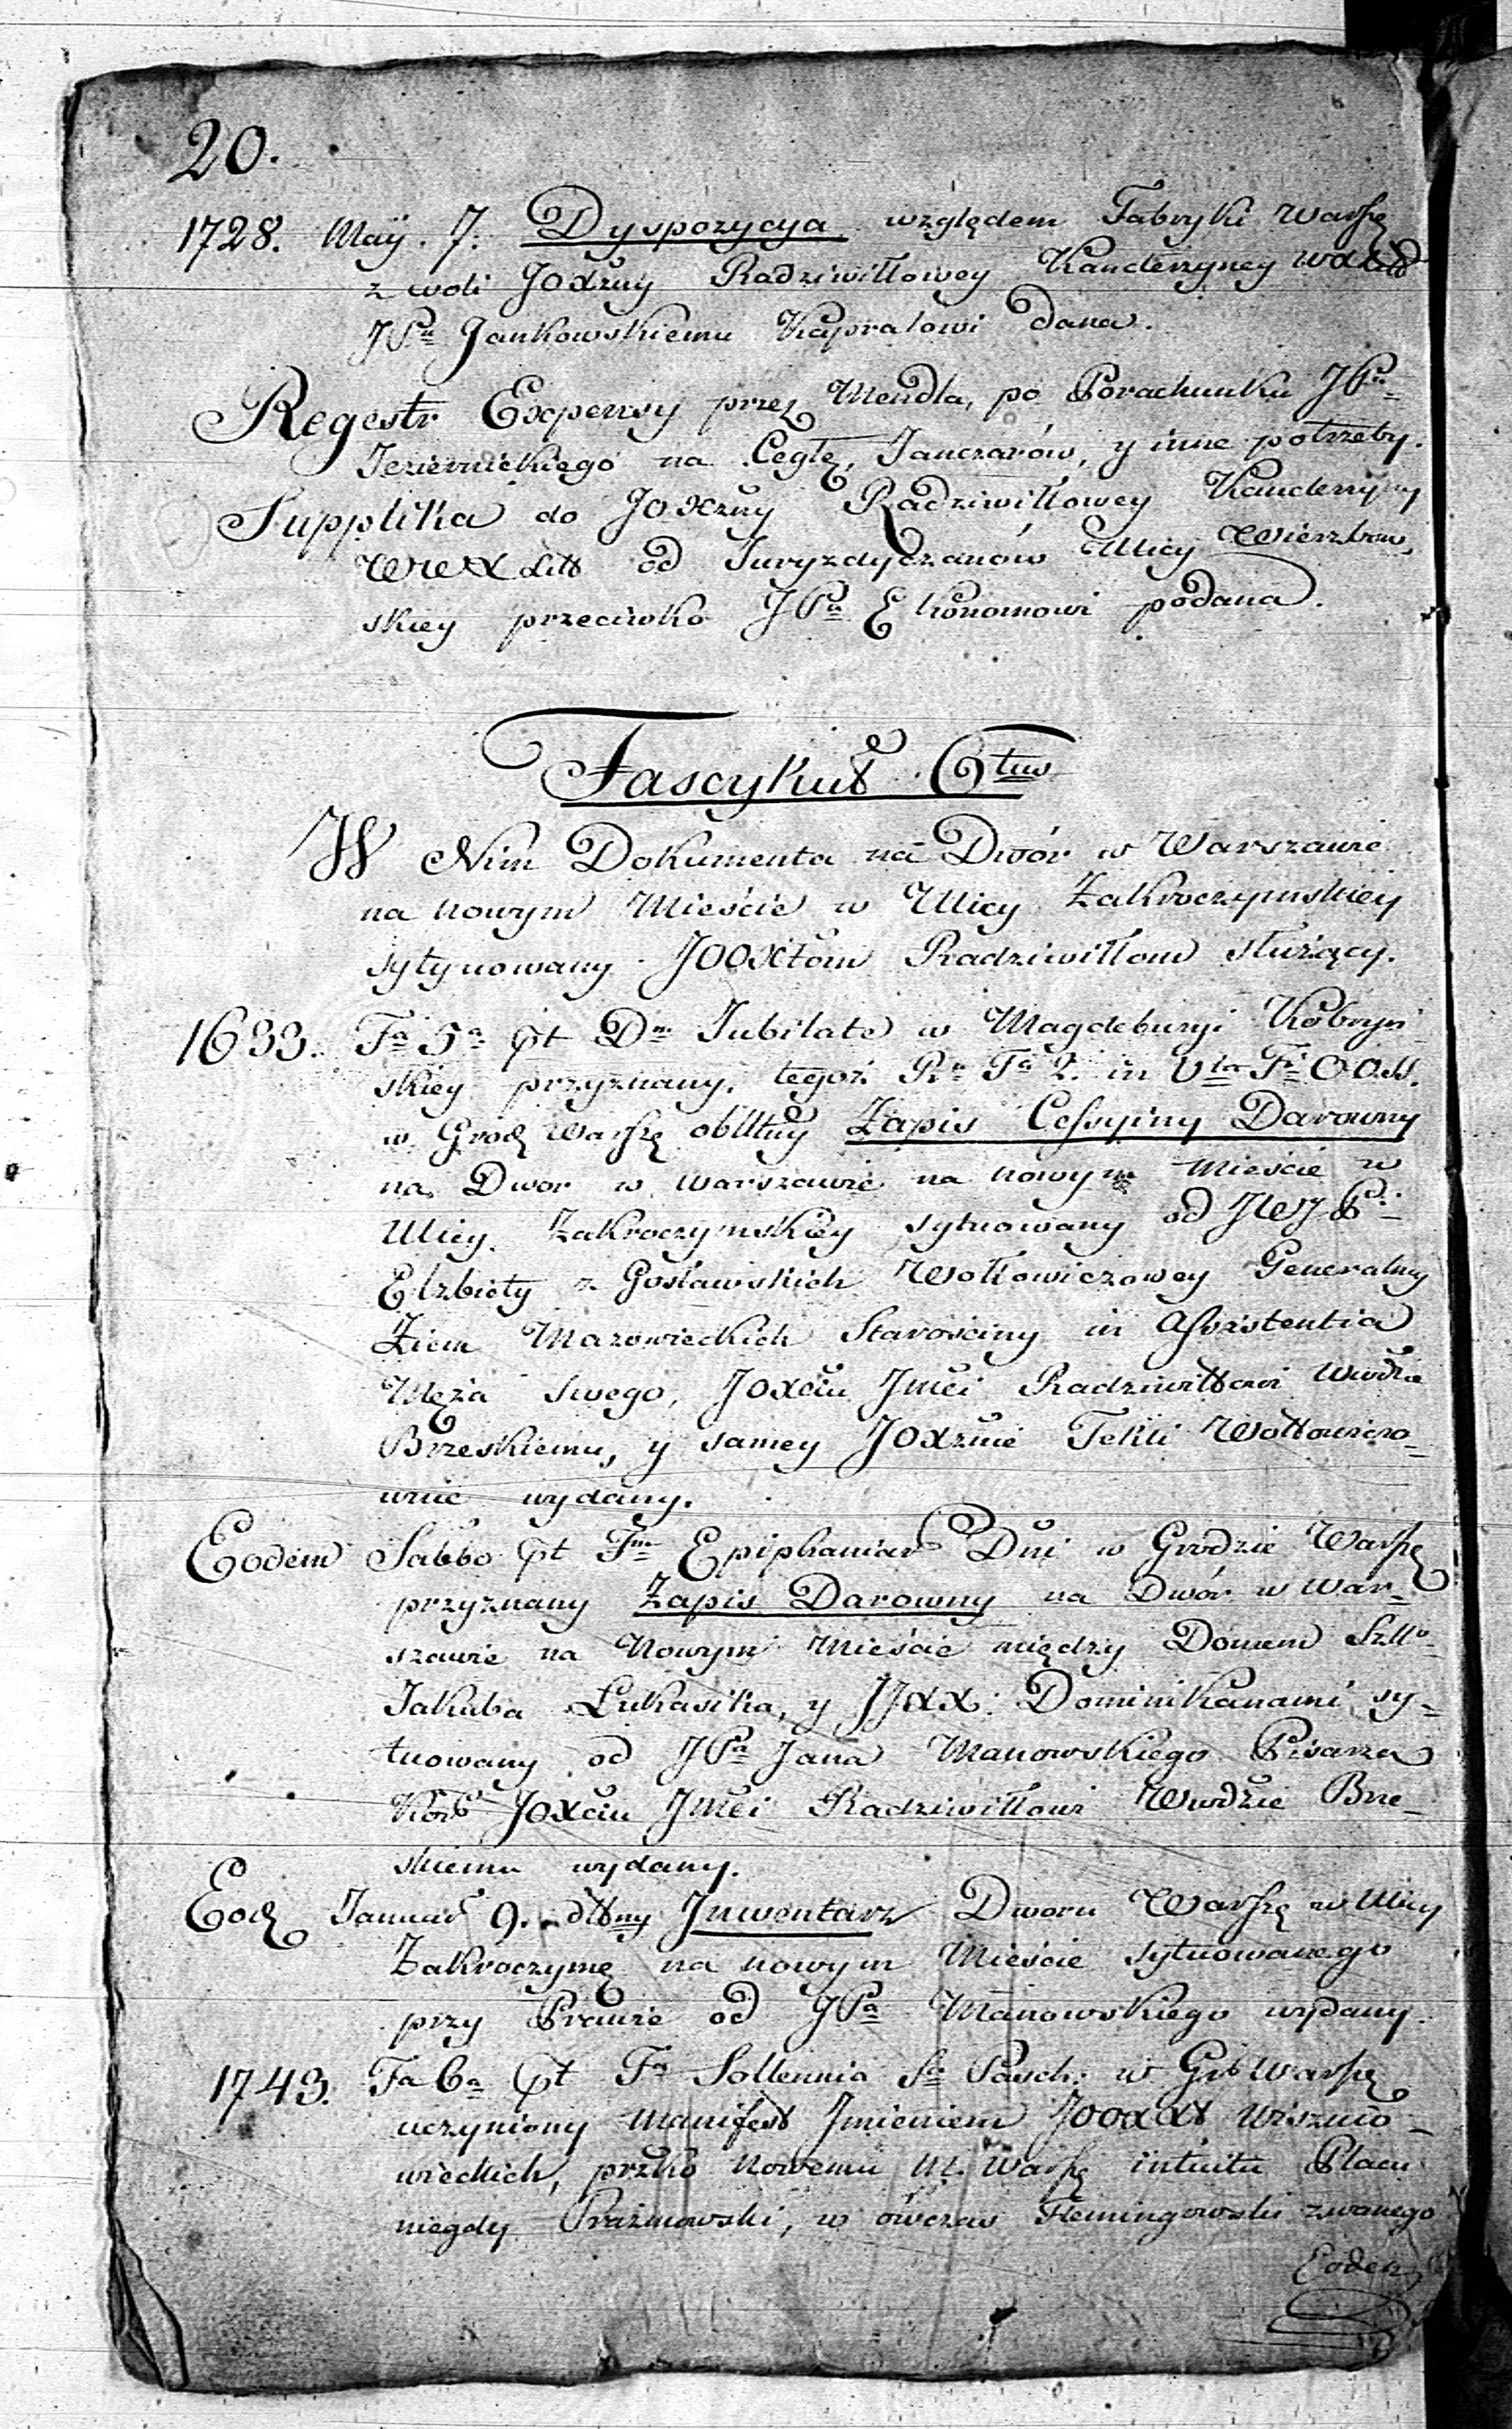 20.
1728. Maÿ. 7. Dyspozycya względem Fabryki Warszę
z woli JOXżny Radziwiłłowey Kanclerzyney WXLitt
JPu Jankowskiemu Kapralowi dana.
Regestr Expensy przez Mendla, po Porachunku JPa
Jeziernickiego na Cegłę, Janczarów, y inne potrzeby.
Supplika do JOXżny Radziwiłłowey Kanclerzyny
WWXLitt od Juryzdyczanów Ulicy Wierzbow,
skiey przeciwko JPu Ekonomowi podana.
Fascykuł 6tus
W Nim Dokumenta na Dwór w Warszawie
na nowym Mieście w Ulicy Zakroczymskiey
sytynowany JOOXtom Radziwiłłom służący.
1633. Fa 5a pt Dm Jubilate w Magdeburyi Kobryń
skiey przyznany, tegoż Ru Fa 2. in Fi OO.SS.
w Grodz Warszę obllttny Zapis Cessyiny Darowny
na Dwor w Warszawie na nowym Mieście w
Ulicy Zakroczymskiey sytuowany od JWJPi
Elzbiety z Gosławskich Wołłowiczowey Generalny
Ziem Mazowieckich Starościny in Assistentia
Męża swego, JOXciu Jmci Radziwiłłowi Wwdzie
Brzeskiemu, y samey JOXżnie Tekli Wołłowiczo-
wnie wydany.
Eodem Sabbo pt Fm Epiphaniar Dni w Grodzie Warszę
przyznany Zapis Darowny na Dwór w War-
szawie na Nowym Mieście między Domem Szllo
Jakuba Łukasika, y JJXX: Dominikanami sy-
tuowany od JPa Jana Manowskiego Pisarza
JOXciu Jmci Radziwiłłowi Wwdzie Brze-
skiemu wydany.
Eodz Januar 9. dttny Inwentarz Dworu Warszę w Ulicy
Zakroczymę na nowym Mieście sytuowanego
przy Prawie od JPa Manowskiego wydany.
1743. Fa 6a pt Fa Sollennia Sa Pasch: w Grb Warszę
uczyniony Manifest Imieniem JOOXXt Wisznio-
wieckich, przko Nowemu M. Warszę intuitu Placu
niegdy Prażmowski, w ówczas Flemingowski zwanego
Eodem